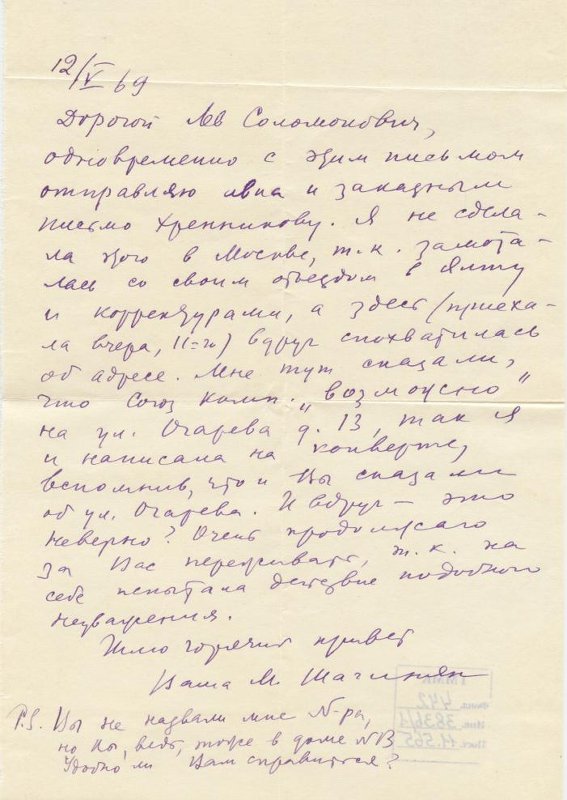 12/V 69
Дорогой Лев Соломонович,
одновременно с этим письмом
отправляю авиа и заказным
письмо Хренникову. Я не сдела-
ла этого в Москве, т.к. замота-
лась со своим отъездом в Ялту
и корректурами, а здесь (приеха-
ла вчера, 11-го) вдруг спохватилась
об адресе. Мне тут сказали,
что Союз Комп. „возможно"
на ул. Огарева д. 13, так я
и написала на конверте,
вспомнив, что и Вы сказали
об ул. Огарева. И вдруг — это
неверно? Очень продолжаю
за Вас переживать, т.к. на
себе испытала действие подобного
неуважения.
Шлю горячий привет
Ваша М. Шагинян
P.S. Вы не назвали мне N-ра,
но Вы, ведь, тоже в доме N13
Удобно ли Вам справиться?
442
3836/1
Н.565